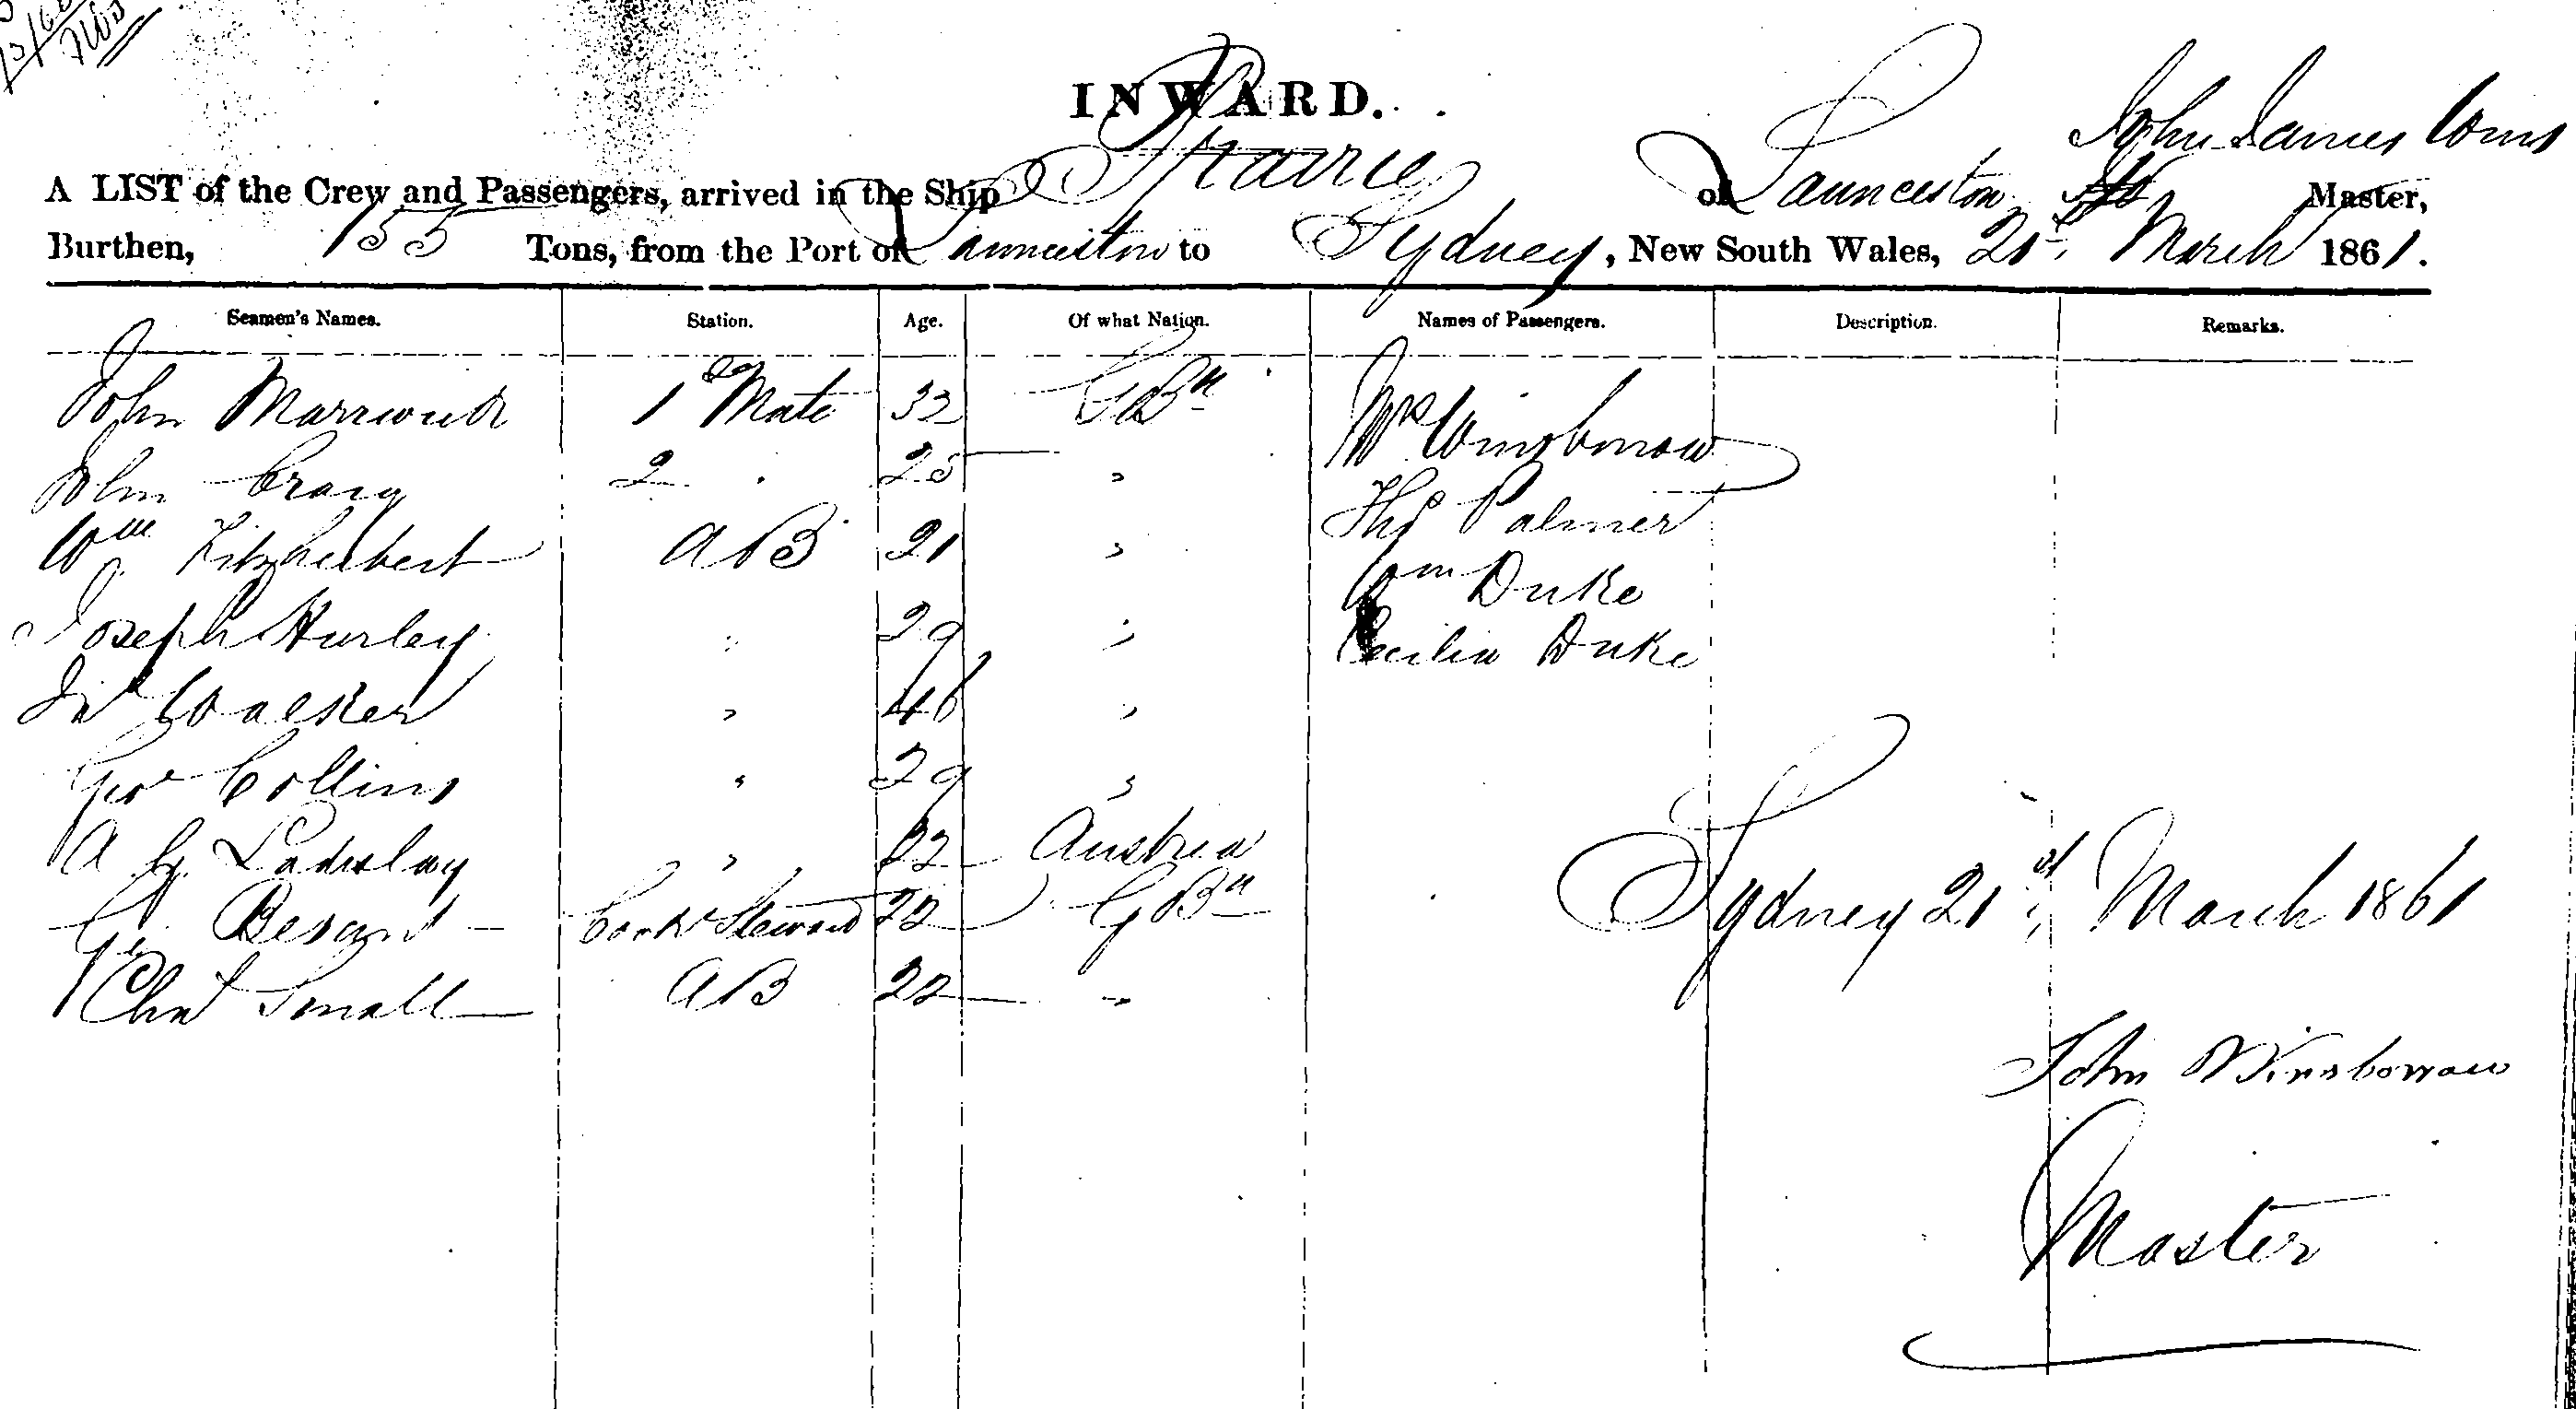 INWARD.
John James Wins
A LIST of the Crew and Passengers, arrived in the Ship Prairie of Launceston Master,
Burthen, 155 Tons, from the Port of Launceston to Sydney, New South Wales, 21st March 1861.
Seamen's Names. Station. Age. Of what Nation. Names of Passengers. Description. Remarks.
John Marrwick 1st Mate 33 G Bn Mrs Winsborrow
John Craig 2 " 25 " Thos Palmer
Wm Fitzherbert AB 21 " Wm Duke
Joseph Hurley " 29 " Cecilia Duke
Jno Walker " 46 "
Geo Collins " 29 "
A G Ladislay " 22 Austria
G Besant Cook & Steward 22 G Bn
Chs Small AB 22 "
Sydney 21st March 1861
John Winsborrow
Master